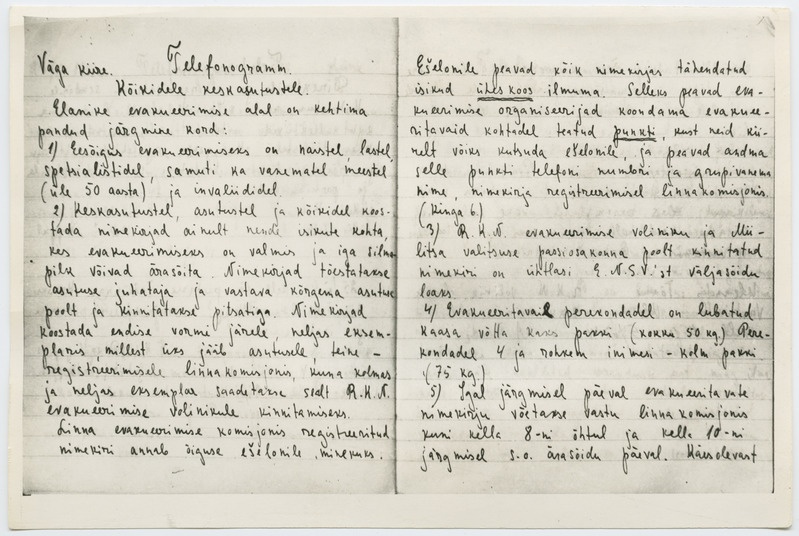 Väga kiire. Telefonogramm.
Kõikidele keskasutustele.
Elanike evakueerimise alal on kehtima
pandud järgmine kord:
1) Eesõigus evakueerimiseks on naistel, lastel,
spetsialistidel, samuti ka vanematel meestel
(üle 50 aasta) ja invaliididel.
2) Keskasutustel, asutustel ja kõikidel koos-
tada nimekirjad ainult nende isikute kohta,
kes evakueerimiseks on valmis ja iga silma
pilk võivad ärasõita. Nimekirjad tõestatakse
asutuse juhataja ja vastava kõrgema asutuse
poolt ja kinnitatakse pitsatiga. Nimekirjad
koostada endise vormi järele, neljas eksem-
plaris millest üks jääb asutusele, teine -
registreerimisele linnakomisjonis, kuna kolmas
ja neljas eksemplar saadetakse sealt R.K.N.
evakueerimise volinikule kinnitamiseks.
Linna evakueerimise komisjonis registreeritud
nimekiri annab õiguse ešelonile minekuks.
Ešelonile peavad kõik nimekirjas tähendatud
isikud üheskoos ilmuma. Selleks peavad eva-
kueerimise organiseerijad koondama evakuee-
ritavaid kohtadel teatud punkti, kust neid kii-
relt võiks kutsuda ešelonile, ja peavad andma
selle punkti telefoni numbri ja grupivanema
nime, nimekirja registreerimisel linnakomisjonis.
(Kinga 6.)
3) R.K.N. evakueerimise voliniku ja Mii-
litsa valitsuse passiosakonna poolt kinnitatud
nimekiri on ühtlasi E.N.S.V.'st väljasõidu
loaks.
4) Evakueeritavail perekondadel on lubatud
kaasa võtta kaks pakki (kokku 50 kg.) Pere-
kondadel 4 ja rohkem inimesi - kolm pakki
(75 kg.)
5) Igal järgmisel päeval evakueeritavate
nimekirju võetakse vastu linna komisjonis
kuni kella 8-ni õhtul ja kella 10-ni
järgmisel s.o. ärasõidu päeval. Käesolevast